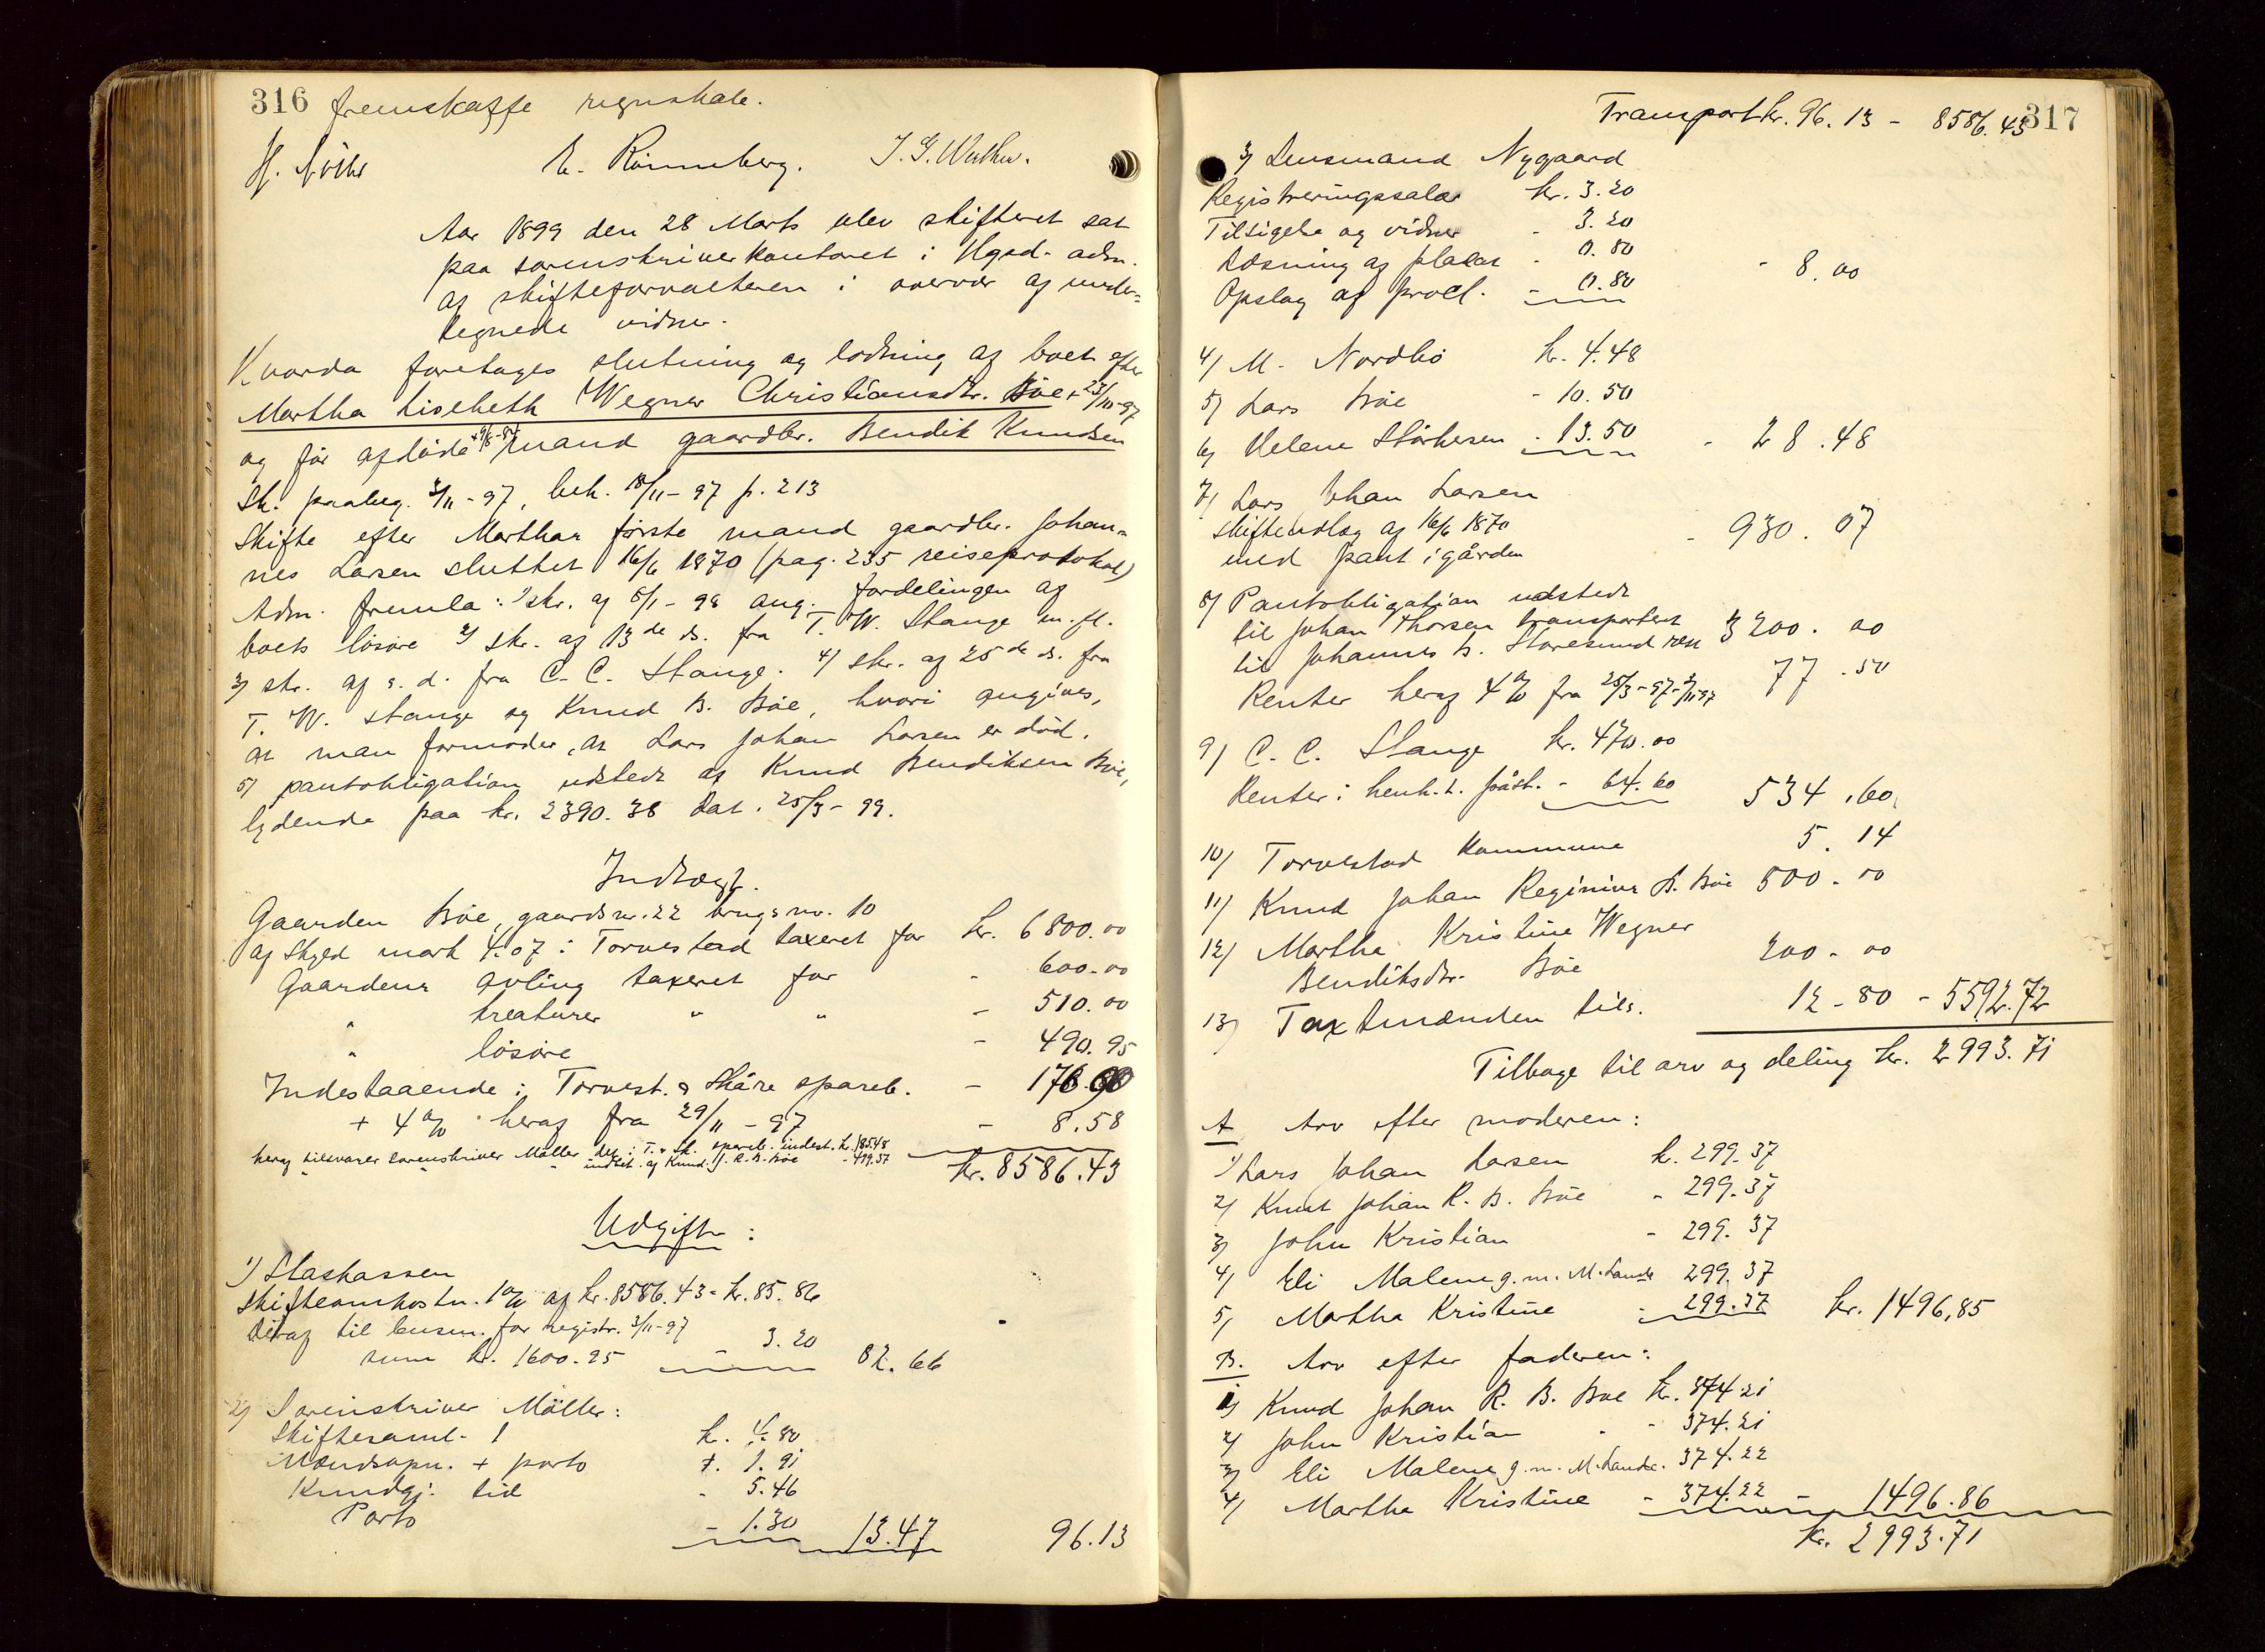 316 fremskaffe regnskab.
E. Rönneberg. J. G. Werther.
Aar 1899 den 28 Marts blev skifteret sat
paa sorenskriverkontoret i Hgsd. adm.
af skifteforvalteren i overvær af under-
tegnede vidner.
Hvorda foretages slutning og lodning af boet efter
Martha Lisebeth Wegner Christiansdtr. Böe + 23/10-97
og før afdöde mand gaardbr. Bendik Knudsen
Sk. paabeg. 3/11-97, bek. 18/11-97 p. 213
Skifte efter Marthas förste mand gaardbr. Johan-
nes Larsen sluttet 16/6 1870 (pag. 235 reiseprotokol)
Adm. fremla: 1/ skr. af 5/1-98 ang. fordelingen af
boets lösöre 2/ skr. af 13de ds. fra T. W. Stange m.fl.
3/ skr. af s. d. fra C. C. Stange. 4/ skr. af 25de ds. fra
T. W. Stange og Knud B. Böe, hvori angives,
at man formoder, at Lars Johan Larsen er död.
5/ pantobligation udstedt af Knud Bendiksen Böe,
lydende paa kr. 2390.38 dat. 25/3-99.
Indtægt.
Gaarden Böe, gaardsnr. 22 brugsnr. 10
af skyld mark 4.07 i Torvestad taxeret for kr. 6800.00
Gaardens avling taxeret for - 600.00
" kreaturer " " - 510.00
" lösöre - 490.95
Indestaaende i Torvest. & Skåre spareb. - 176.90
+ 4 % heraf fra 29/11-97 - 8.58
heraf tilsvarer sorenskriver Möller det i T. & Sk. spareb. indest. kr. 185.48
" " indbet. af Knud J. R. B. Böe - 499.37
kr. 8586.43
Udgifter:
1/ Statskassen
Skifteomkostn. 1% af kr. 8586.43 = kr. 85.86
Heraf til lensm. for registr. 3/11-97
sum kr. 1600.95 - 3.20 82.66
2/ Sorenskriver Möller:
Skiftesaml. 1 kr. 4.80
Mændsopn. + porto + 1.91
Kundgj. tid - 5.46
Porto - 1.30 13.47 96.13
317
Transport kr. 96.13 - 8586.43
3/ Lensmand Nygaard
Registreringssalær kr. 3.20
Tilsigelse og vidner - 3.20
Læsning af placat - 0.80
Opslag af procl. - 0.80 - 8.00
4/ M. Nordbö kr. 4.48
5/ Lars Böe - 10.50
6/ Helene Störkesen - 13.50 - 28.48
7/ Lars Johan Larsen
skifteudlæg af 16/6 1870
med pant i gården - 930.07
8/ Pantobligation udstedt
til Johan Thorsen transporteret
til Johannes B. Storesund 3200.00
Renter heraf 4% fra 25/3-97-3/11 97 77.50
9/ C. C. Stange kr. 470.00
Renter i henh. t. påst. - 64.60 534.60
10/ Torvestad kommune 5.14
11/ Knud Johan Reginius B. Böe 500.00
12/ Martha Kristine Wegner
Bendiksdtr. Böe 200.00
13/ Taxtmænden tils. 12.80 - 5592.72
Tilbage til arv og deling kr. 2993.71
A Arv efter moderen:
1/ Lars Johan Larsen k. 299.37
2/ Knut Johan R. B. Böe - 299.37
3/ John Kristian - 299.37
4/ Eli Malene g.m. M. Lande 299.37
5/ Martha Kristine - 299.37 kr. 1496,85
B. Arv efter faderen:
1/ Knud Johan R. B. Böe k. 374.21
2/ John Kristian - 374.21
3/ Eli Malene g.m. M. Lande. 374.22
4/ Martha Kristine - 374.22 - 1496.86
kr. 2993.71